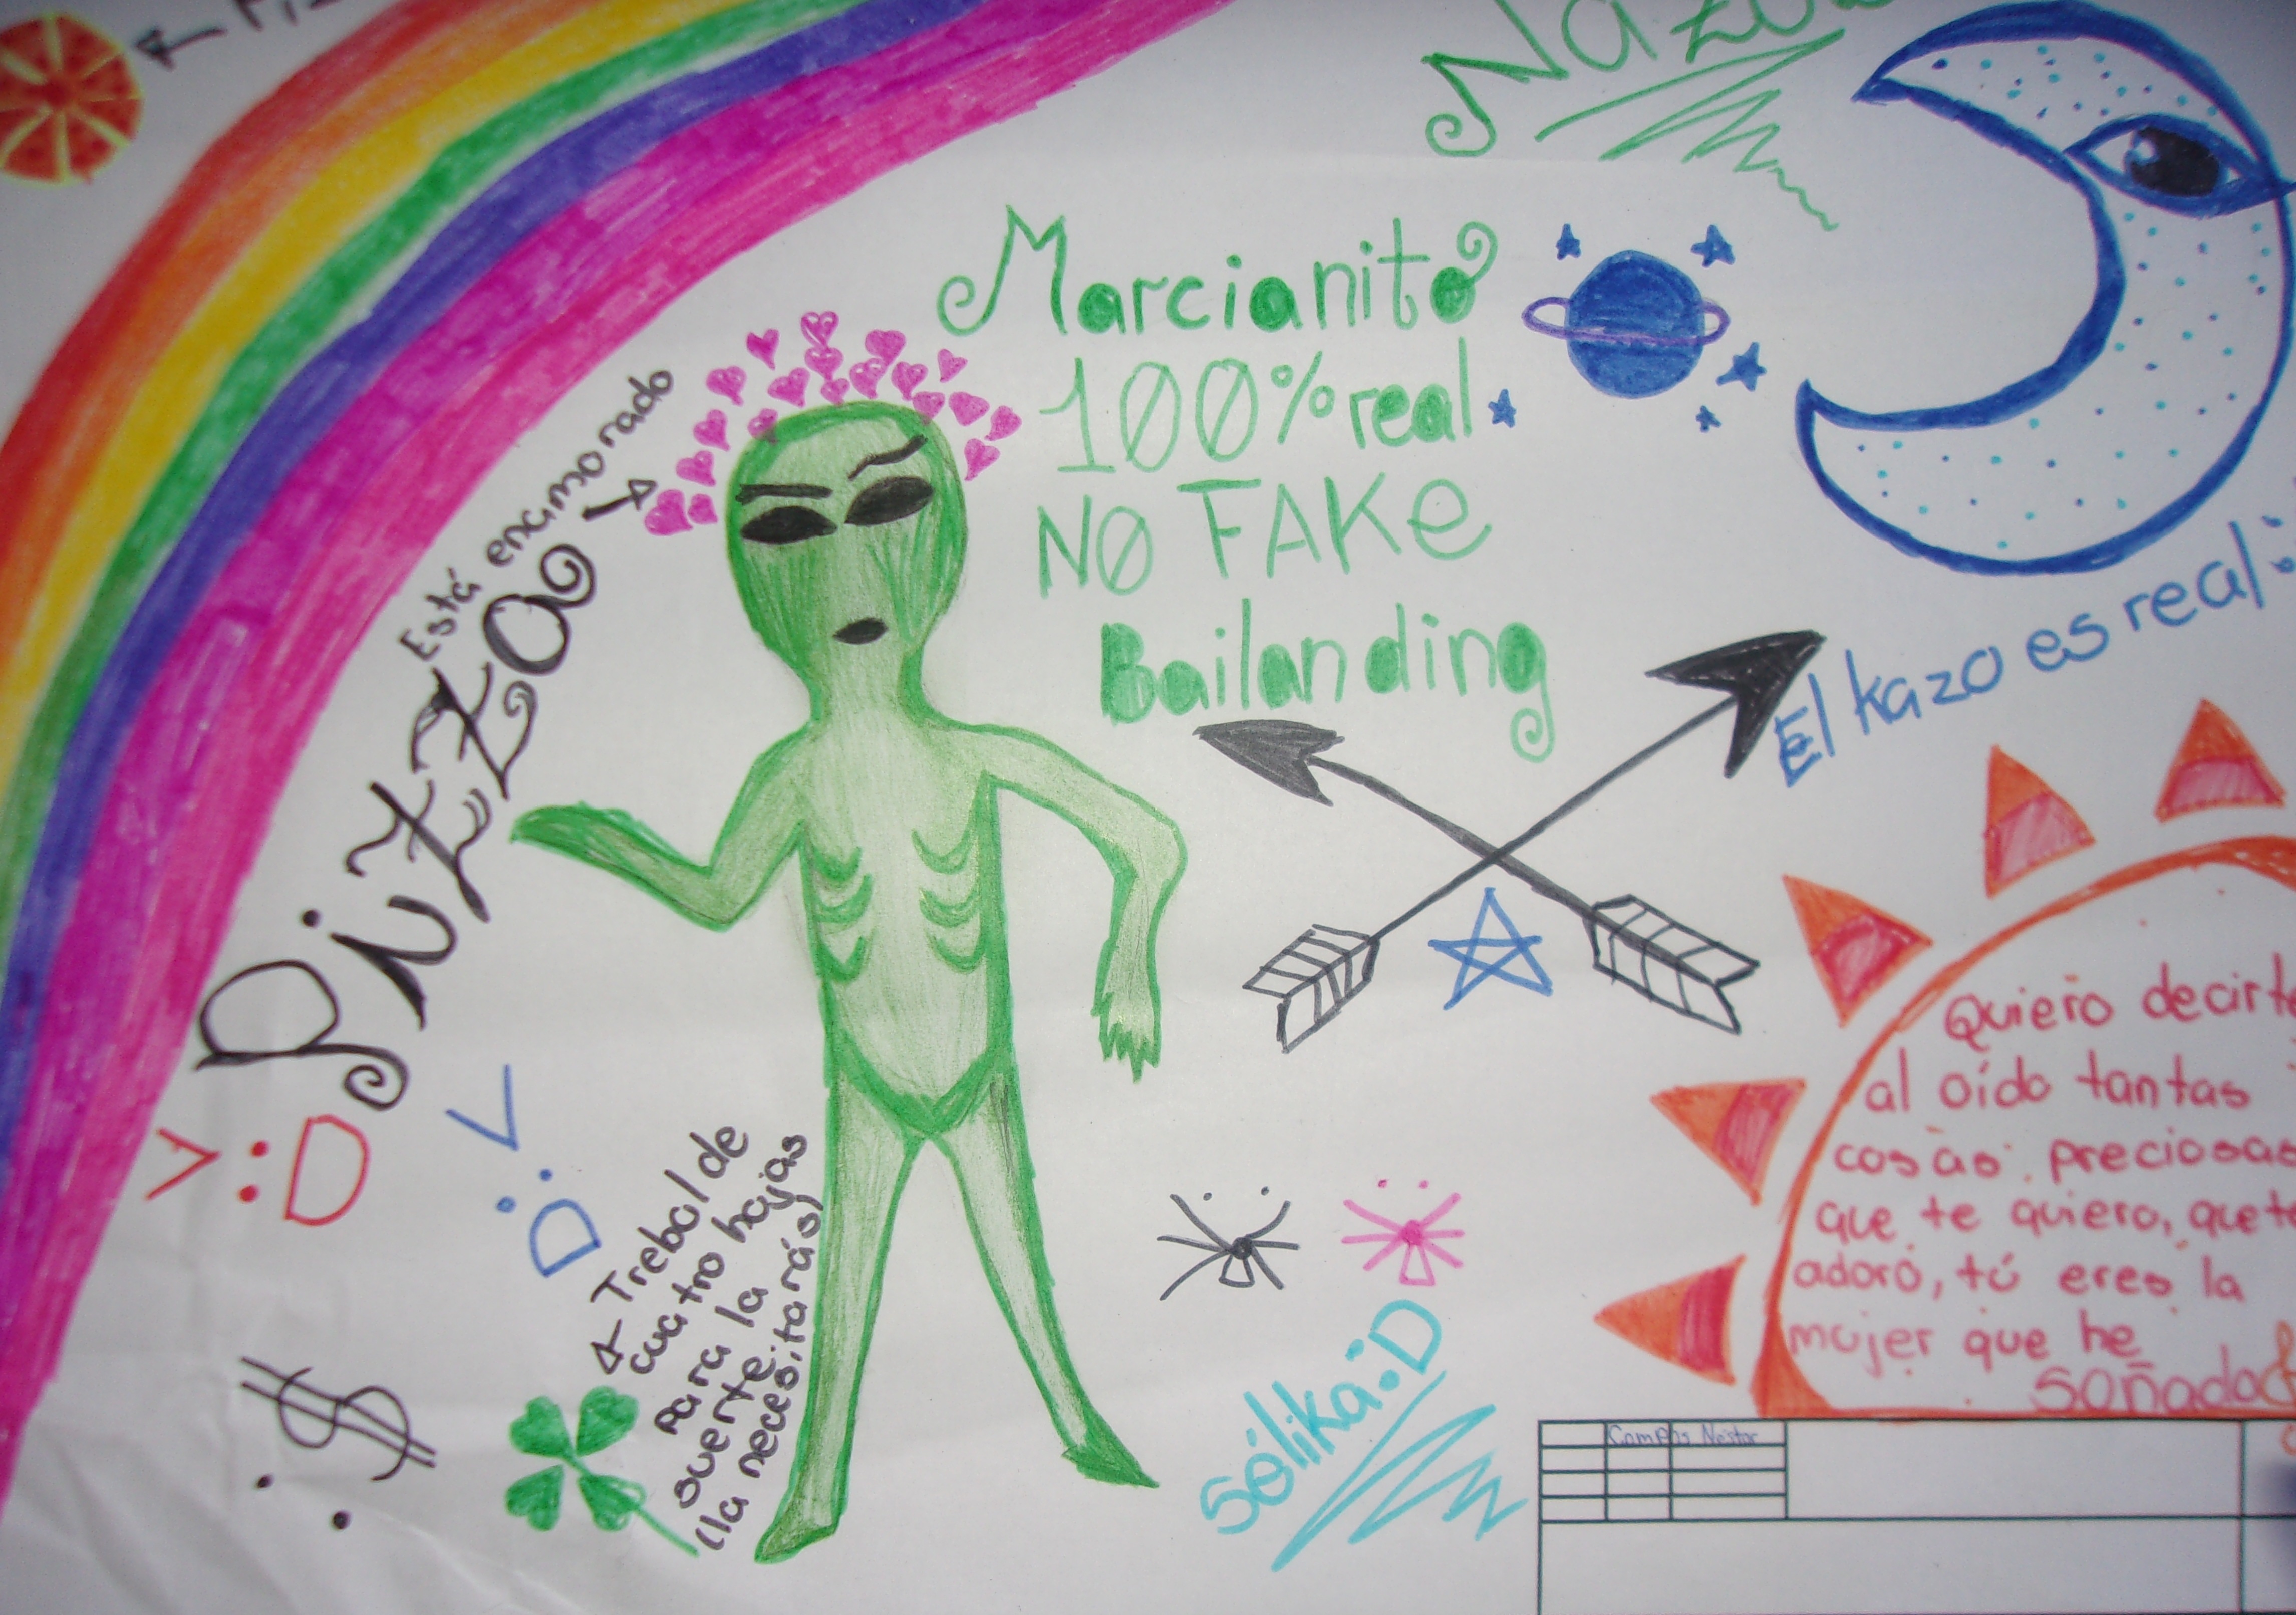 Marcianito
100% real
NO FAKe
Bailanding
Está enamorado
Pizzzao
>:D
>:D
Trebol de
cuatro hojas
para la
suerte
(la necesitarás)
:$
Sólika:D
El kazo es real:
Quiero decirte
al oído tantas
cosas preciosas
que te quiero, que te
adoro, tú eres la
mujer que he
soñado
Campos Néstor